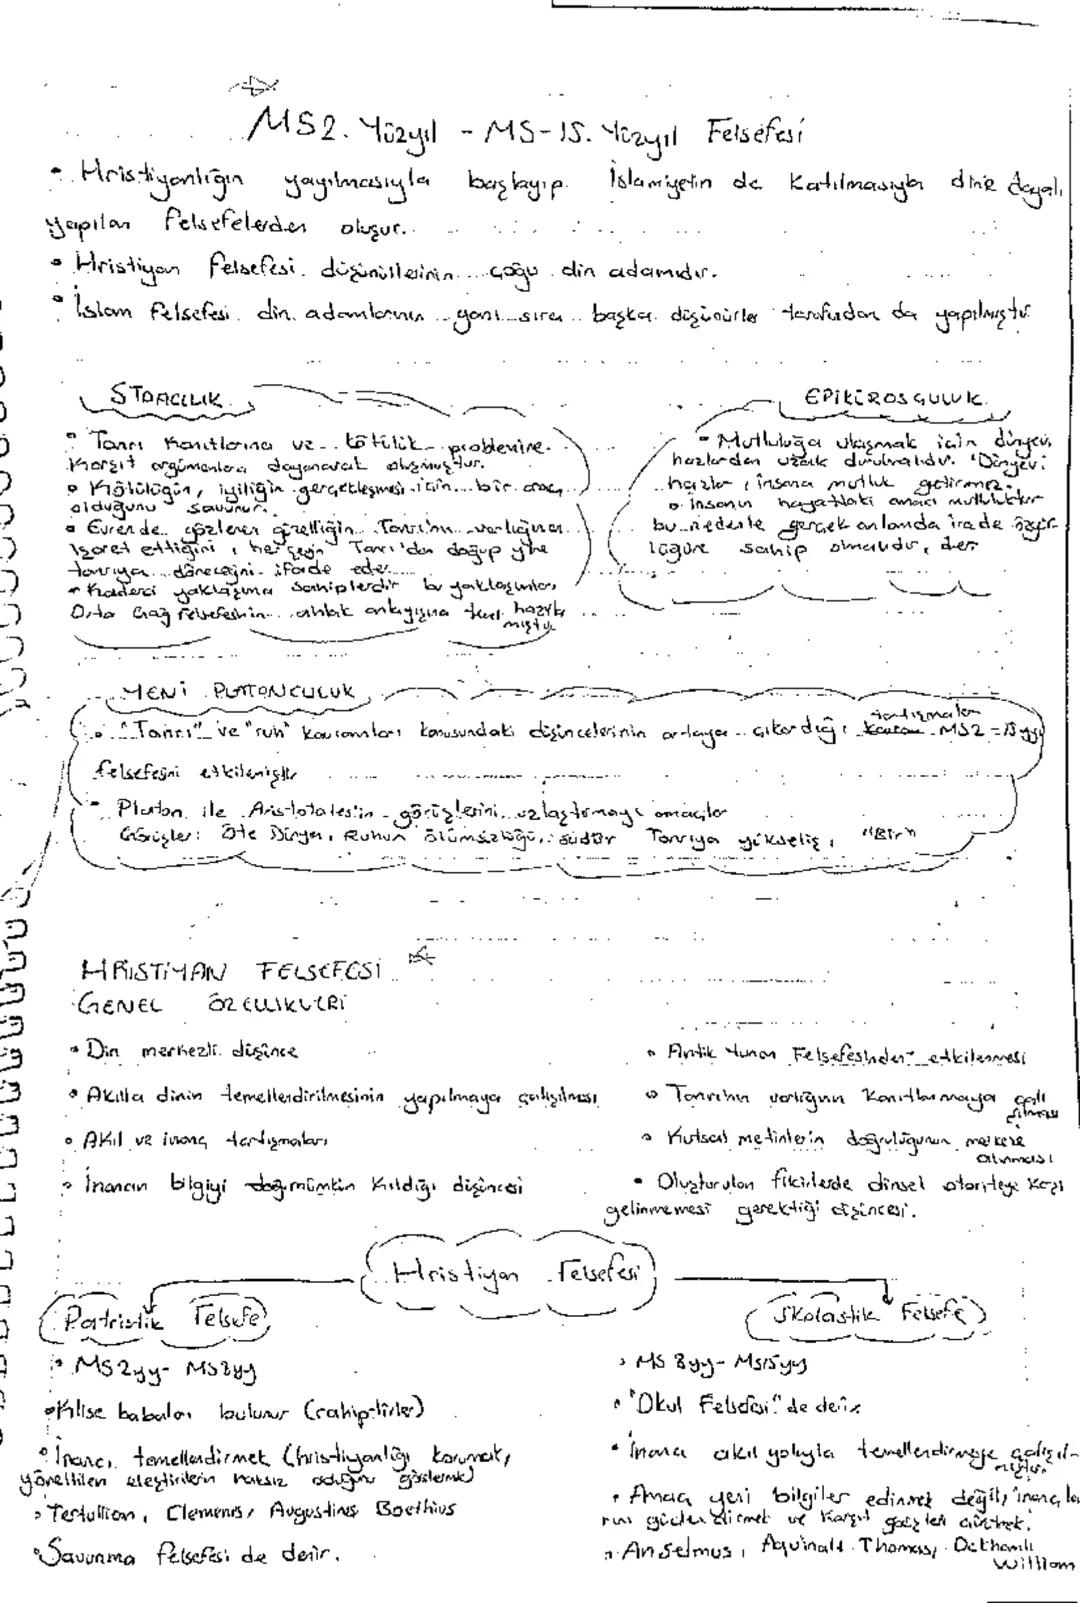 MS2. Yüzyıl - MS-15. Yüzyıl Felsefesi
• Hristiyanlığın yayılmasıyla başlayıp. İslamiyetin de katılmasıyla dine dayalı,
yapılan felsefelerden oluşur.
• Hristiyan felsefesi düşünüllerinin çoğu din adamıdır.
• İslam felsefesi din adamlarının yanı sıra başka düşünürler tarafından da yapılmıştır
STOACILIK
• Tanrı kanıtlarına ve kötülük problemine
Karşıt argümanlara dayanarak oluşmuştur.
• Kötülüğün, iyiliğin gerçekleşmesi için bir araç
olduğunu savunur.
• Evrende gözlenen güzelliğin Tanrı'nın varlığına
işaret ettiğini, herşeyin Tanrı'dan doğup yine
tanrıya döneceğini ifade eder.
• Kaderci yaklaşıma sahiplerdir bu yaklaşımları
Orta Çağ felsefesinin ahlak anlayışına temel hazırla
mıştır
EPİKÜROSÇULUK
• Mutluluğa ulaşmak için dünyevi
hazlardan uzak durulmalıdır. "Dünyevi
hazlar, insana mutluluk getirmez.
• İnsanın hayattaki amacı mutluluktur
bu nedenle gerçek anlamda irade özgür
lüğüne sahip olmalıdır, der.
YENİ PLATONCULUK
• "Tanrı" ve "ruh" kavramları konusundaki düşüncelerinin ortaya çıkardığı tartışmalar MS2-15yy
felsefesini etkilemiştir
• Platon ile Aristotales'in görüşlerini uzlaştırmayı amaçlar
Görüşler: Öte Dünya, Ruhun ölümsüzlüğü, Südür Tanrıya yükseliş, "Bir"
HRİSTİYAN FELSEFESİ
GENEL ÖZELLİKLERİ
• Din merkezli düşünce
• Akılla dinin temellendirilmesinin yapılmaya çalışılması
• Akıl ve inanç tartışmaları
• İnancın bilgiyi mümkün kıldığı düşüncesi
• Antik Yunan Felsefesinden etkilenmesi
• Tanrının varlığının kanıtlanmaya çalı
şılması
• Kutsal metinlerin doğruluğunun merkeze
alınması
• Oluşturulan fikirlerde dinsel otoriteye karşı
gelinmemesi gerektiği düşüncesi.
Hristiyan Felsefesi
Patristik Felsefe
• MS2yy- MS8yy
• Kilise babaları bulunur (rahiptirler)
• İnancı temellendirmek (hristiyanlığı korumak,
yöneltilen eleştirilerin haksız olduğunu göstermek)
• Tertullian, Clemens, Augustinus Boethius
• Savunma felsefesi de denir.
Skolastik Felsefe
• MS 8yy- MS15yy
• "Okul Felsefesi" de denir
• İnancı akıl yoluyla temellendirmeye çalışıl-
mıştır
• Amaç yeni bilgiler edinmek değil, inançla
rını güçlendirmek ve karşıt
• Anselmus, Aquinalı Thomas, Ockhamlı
William